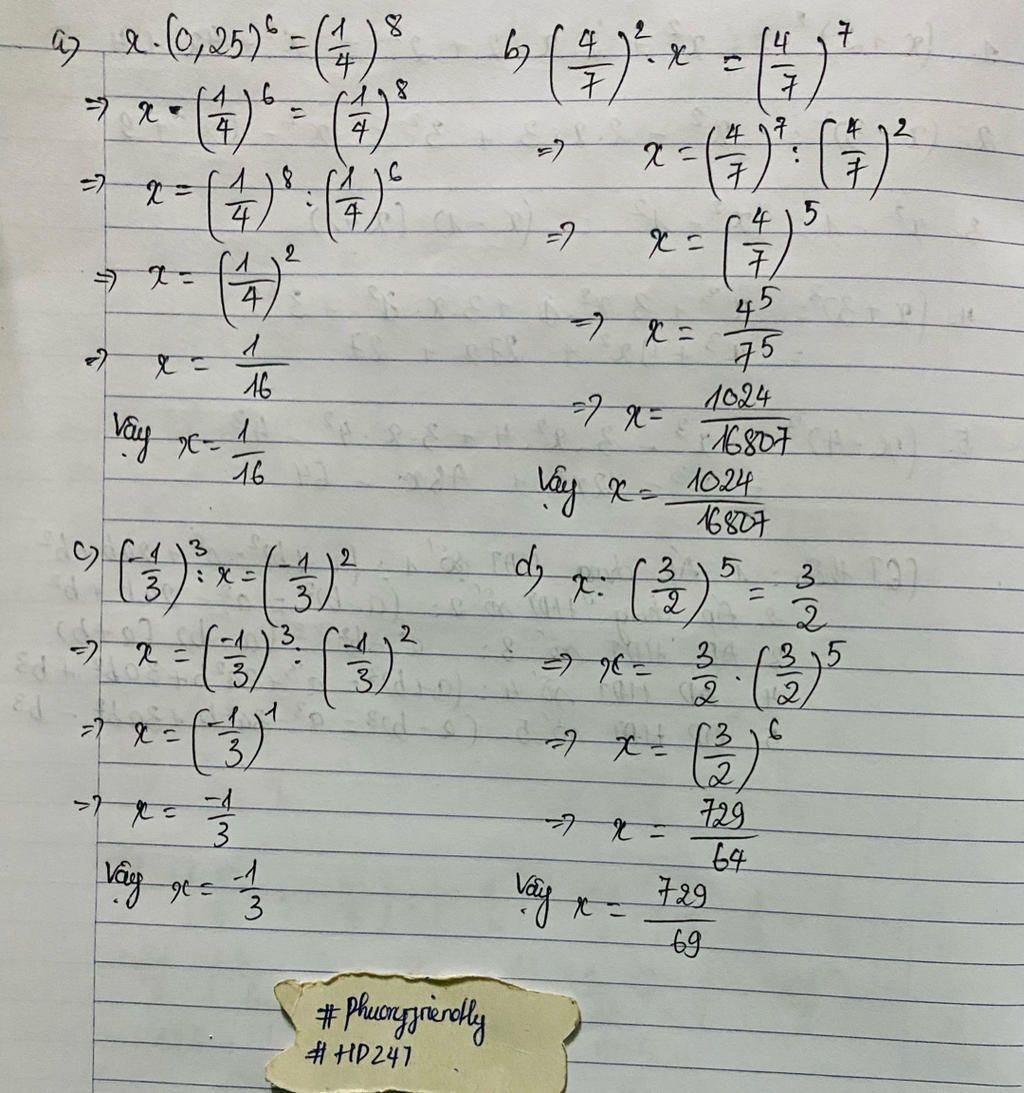 a) x . (0,25)^6 = (1/4)^8
=> x . (1/4)^6 = (1/4)^8
=> x = (1/4)^8 : (1/4)^6
=> x = (1/4)^2
=> x = 1/16
Vậy x = 1/16
b) (4/7)^2 . x = (4/7)^7
=> x = (4/7)^7 : (4/7)^2
=> x = (4/7)^5
=> x = 4^5/7^5
=> x = 1024/16807
Vậy x = 1024/16807
c) (-1/3)^3 : x = (-1/3)^2
=> x = (-1/3)^3 : (-1/3)^2
=> x = (-1/3)^1
=> x = -1/3
Vậy x = -1/3
d) x : (3/2)^5 = 3/2
=> x = 3/2 . (3/2)^5
=> x = (3/2)^6
=> x = 729/64
Vậy x = 729/69
# HD247